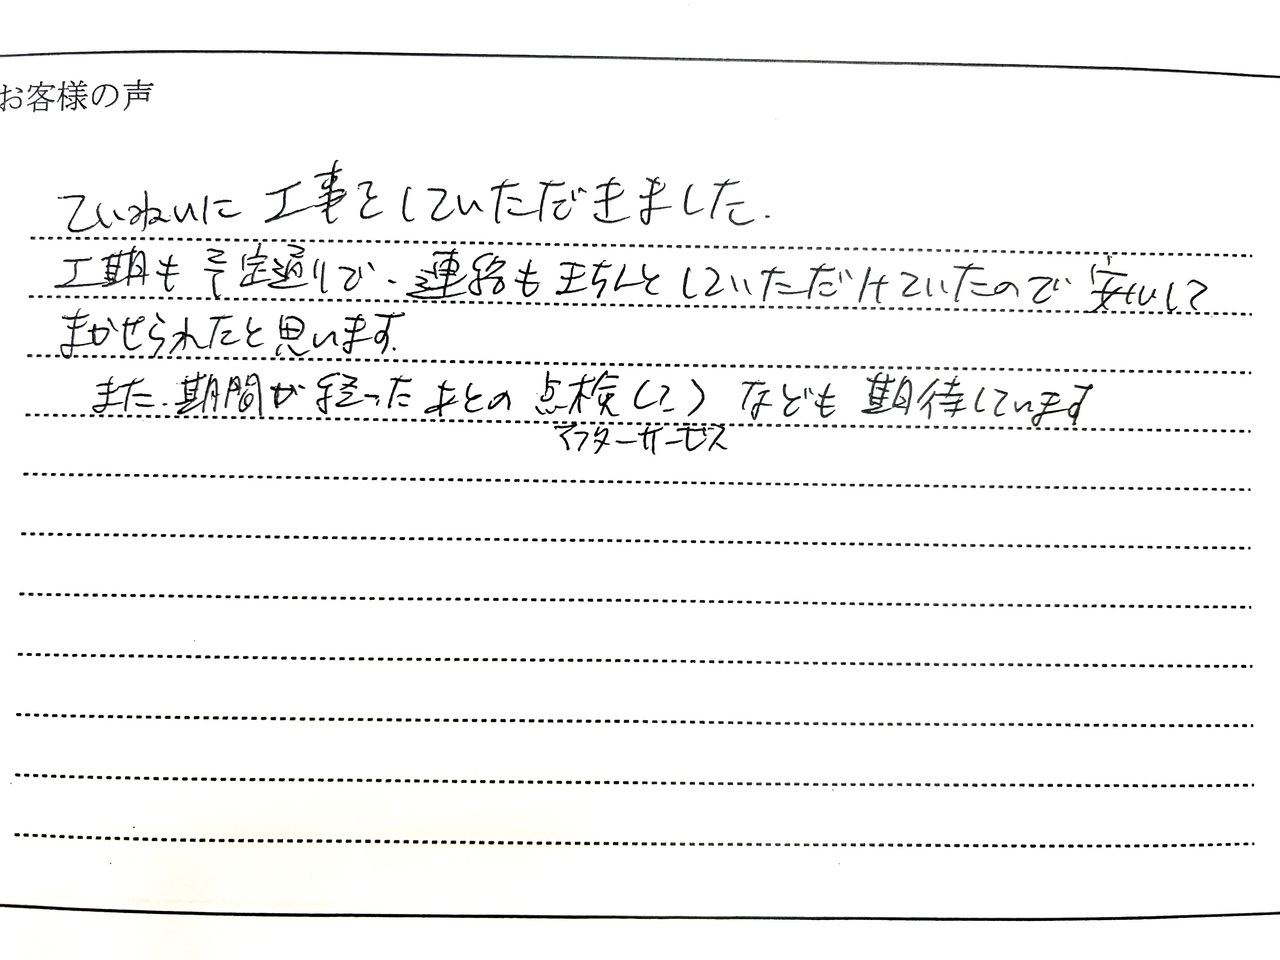 お客様の声
ていねいに工事をしていただきました。
工期も予定通りで、連絡もきちんとしていただけていたので安心して
まかせられたと思います。
また、期間が経ったあとの点検(　)なども期待しています
アフターサービス